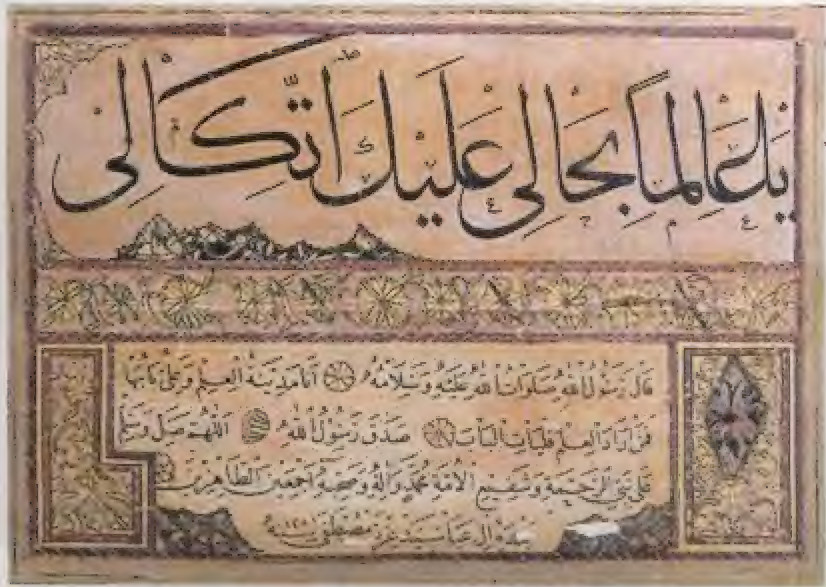 يا عالما بحالي عليك اتكالي
قال رسول الله صلوات الله عليه وسلامه انا مدينة العلم وعلي بابها
فمن اراد العلم فليات الباب صدق رسول الله اللهم صل وسلم
على نبي الرحمة وشفيع الامة محمد وآله وصحبه اجمعين الطاهرين
عزت مصطفى